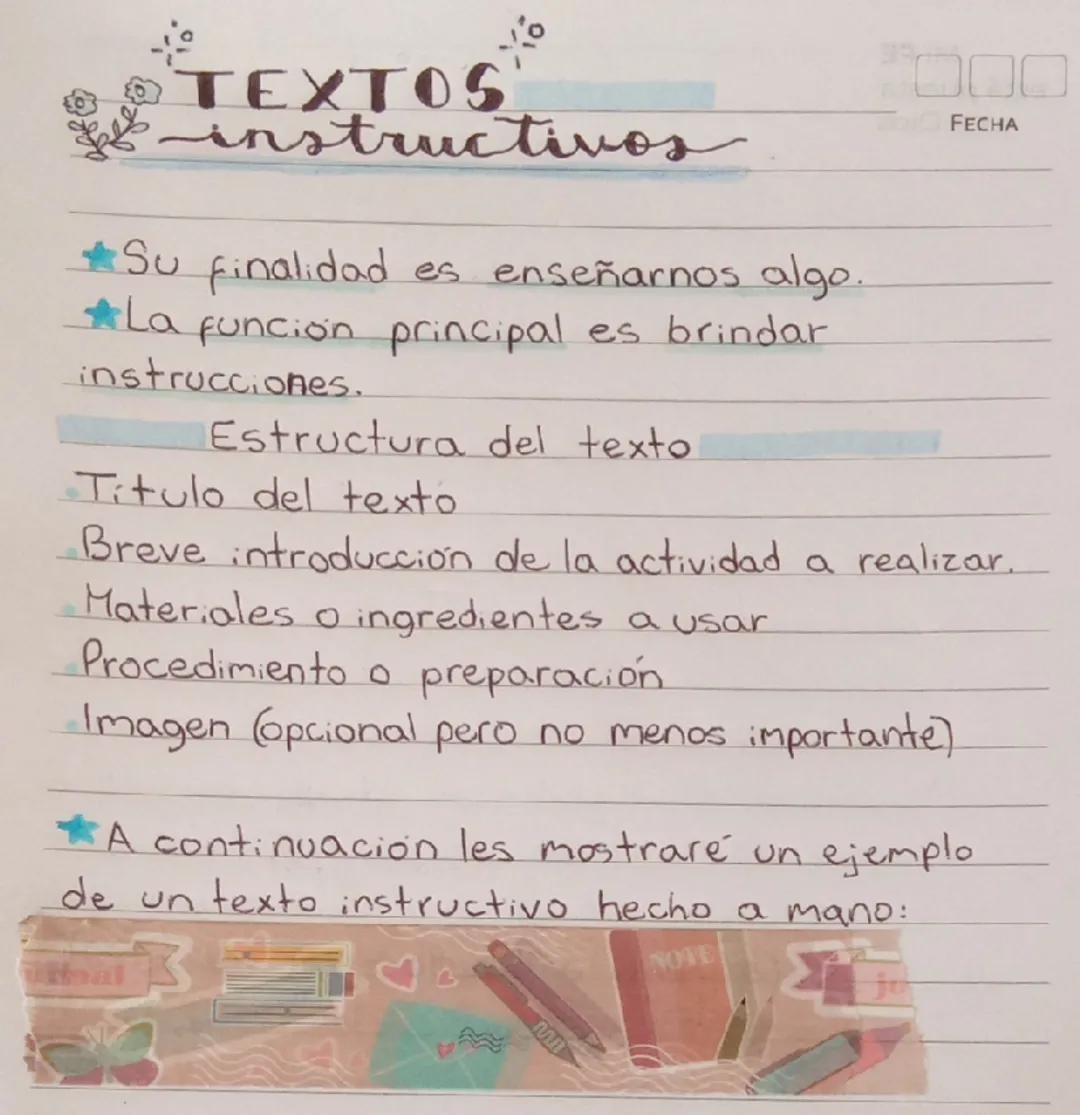 TEXTOS
instructivos
FECHA
Su finalidad es enseñarnos algo.
La función principal es brindar
instrucciones.
Estructura del texto
Título del texto
Breve introducción de la actividad a realizar.
Materiales o ingredientes a usar
Procedimiento o preparación
Imagen (opcional pero no menos importante)
A continuación les mostraré un ejemplo
de un texto instructivo hecho a mano:
NOTE